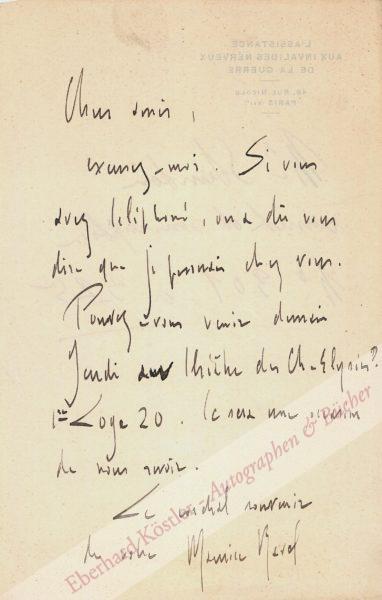 L'ASSISTANCE
AUX INVALIDES NERVEUX
DE LA GUERRE
48, RUE NICOLO
PARIS XVIe
Chers amis,
excusez-moi. Si vous
avez téléphoné, on a dû vous
dire que je passerais chez vous.
Pouvez-vous venir demain
Jeudi au Théâtre des Ch-Elysées?
1re Loge 20. Ce sera une occasion
de nous revoir.
Le cordial souvenir
de votre Maurice Ravel
Eberhard Köstler - Autographen & Bücher